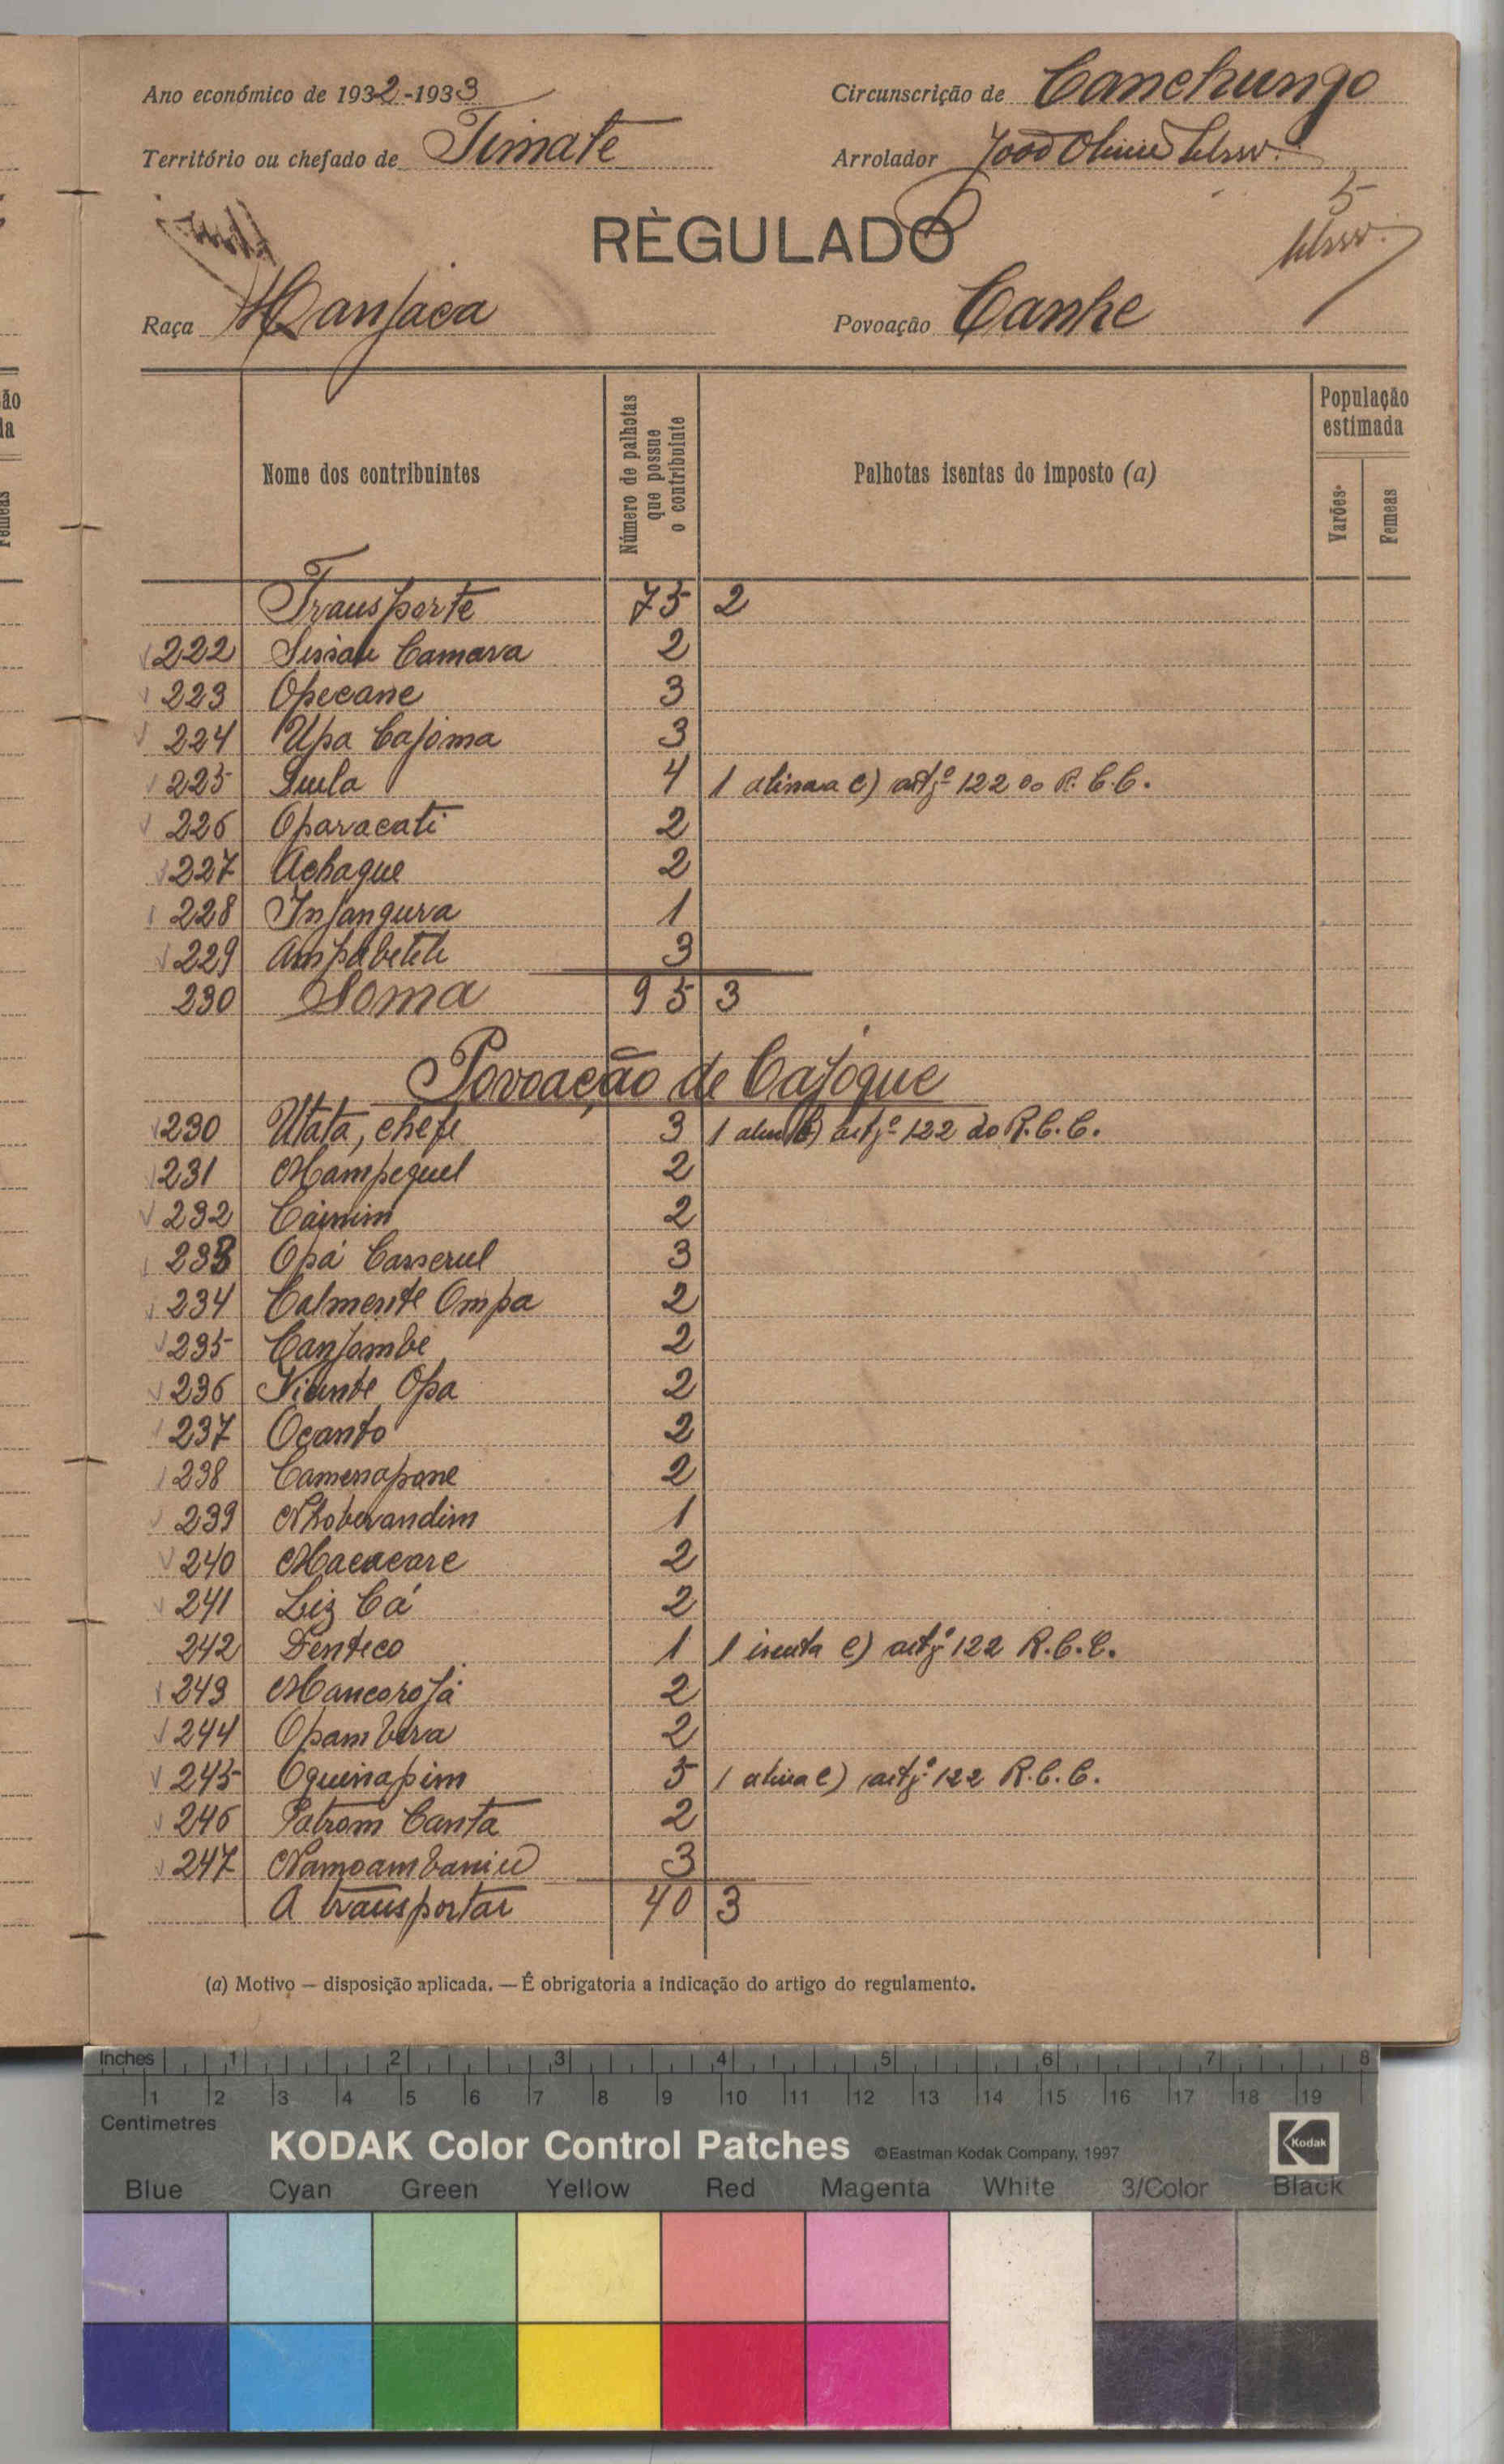 Ano económico de 1932-1933
Circunscrição de Canchungo
Território ou chefado de Timate
Arrolador João
RÈGULADO
5
Raça Manjaca
Povoação Canhe
Nome dos contribuintes
Número de palhotas que possue o contribuinte
Palhotas isentas do imposto (a)
População estimada
Varões
Femeas
Transporte 75 2
222 Camara 2
223 Opecane 3
224 Upa Cajóma 3
225 4 1 alinea e) artº 122 do R.C.C.
226 Oparacati 2
227 Achaque 2
228 Injangura 1
229 3
230 Soma 95 3
Povoação de Cajogue
230 Utata, chefe 3 1 artº 122 do R.C.C.
231 Mampequel 2
232 Cainim 2
233 Opá Casserul 3
234 Calmente Ompa 2
235 Canjambe 2
236 Vicente Opa 2
237 Ocanto 2
238 Camenapone 2
239 Nhoberandim 1
240 Macacare 2
241 Liz Cá 2
242 Denteco 1 1 isenta e) artº 122 R.C.C.
243 Mancorojá 2
244 Opambera 2
245 Oquinapim 5 1 alinea e) artº 122 R.C.C.
246 Patrom Canta 2
247 3
A transportar 40 3
(a) Motivo — disposição aplicada. — É obrigatoria a indicação do artigo do regulamento.
Inches 1 2 3 4 5 6 7 8
1 2 3 4 5 6 7 8 9 10 11 12 13 14 15 16 17 18 19
Centimetres
KODAK Color Control Patches ©Eastman Kodak Company, 1997 Kodak
Blue Cyan Green Yellow Red Magenta White 3/Color Black